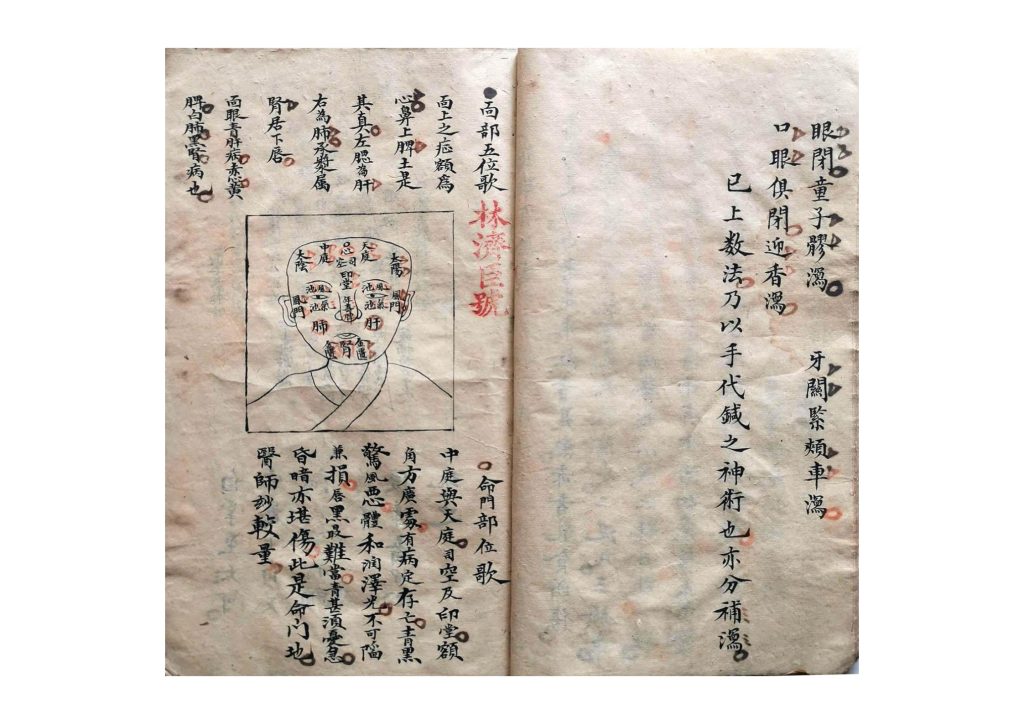 眼閉童子髎瀉
牙關緊頰車瀉
口眼俱閉迎香瀉
已上数法乃以手代鍼之神術也亦分補瀉
面部五位歌
面上之症額為
心鼻上脾土是
其真左腮為肝
右為肺承漿属
腎居下唇
面眼青肝病赤心黃
脾白肺黑腎病也
林濟臣號
太陽
天庭
司空
中庭
太陰
印堂
風池
氣池
風池
氣池
風門
風門
肝
肺
腎
命門部位歌
中庭與天庭司空及印堂額
角方廣處有病定存亡青黑
驚風惡體和润澤光不可陷
兼損唇黑最難當青甚須憂急
昏暗亦堪傷此是命門地
醫師妙較量